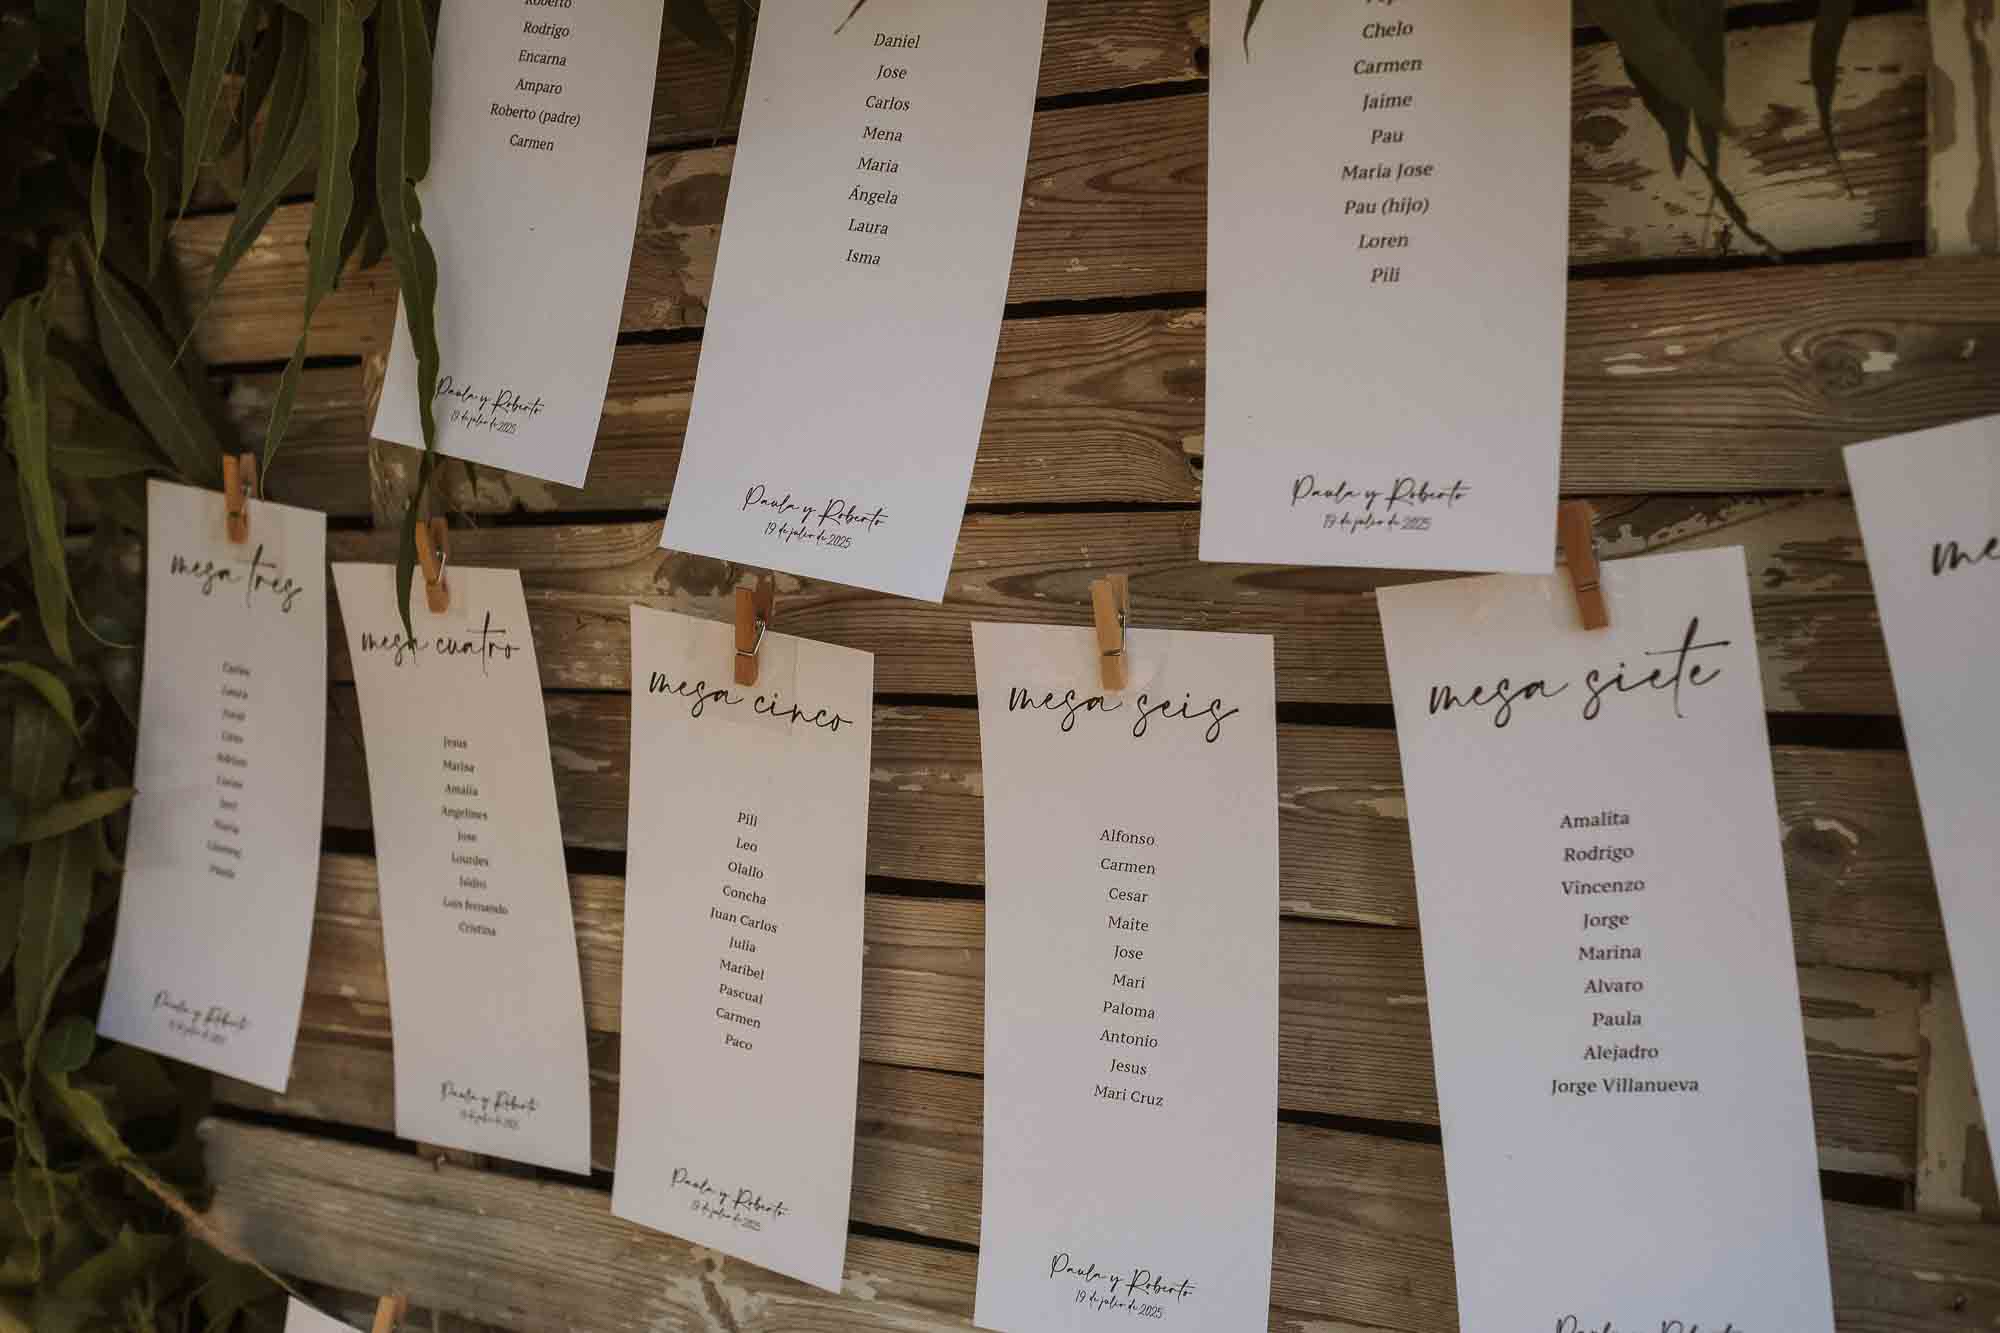 Roberto
Rodrigo
Encarna
Amparo
Roberto (padre)
Carmen
Paula y Roberto
19 de julio de 2025
Daniel
Jose
Carlos
Mena
Maria
Ángela
Laura
Isma
Paula y Roberto
19 de julio de 2025
Chelo
Carmen
Jaime
Pau
Maria Jose
Pau (hijo)
Loren
Pili
Paula y Roberto
19 de julio de 2025
mesa tres
Carlos
Laura
Adrian
Maria
Paula y Roberto
19 de julio de 2025
mesa cuatro
Jesus
Marina
Amalia
Angelines
Jose
Lourdes
Isidro
Luis fernando
Cristina
Paula y Roberto
19 de julio de 2025
mesa cinco
Pili
Leo
Olallo
Concha
Juan Carlos
Julia
Maribel
Pascual
Carmen
Paco
Paula y Roberto
19 de julio de 2025
mesa seis
Alfonso
Carmen
Cesar
Maite
Jose
Mari
Paloma
Antonio
Jesus
Mari Cruz
Paula y Roberto
19 de julio de 2025
mesa siete
Amalita
Rodrigo
Vincenzo
Jorge
Marina
Alvaro
Paula
Alejadro
Jorge Villanueva
Paula y Roberto
me